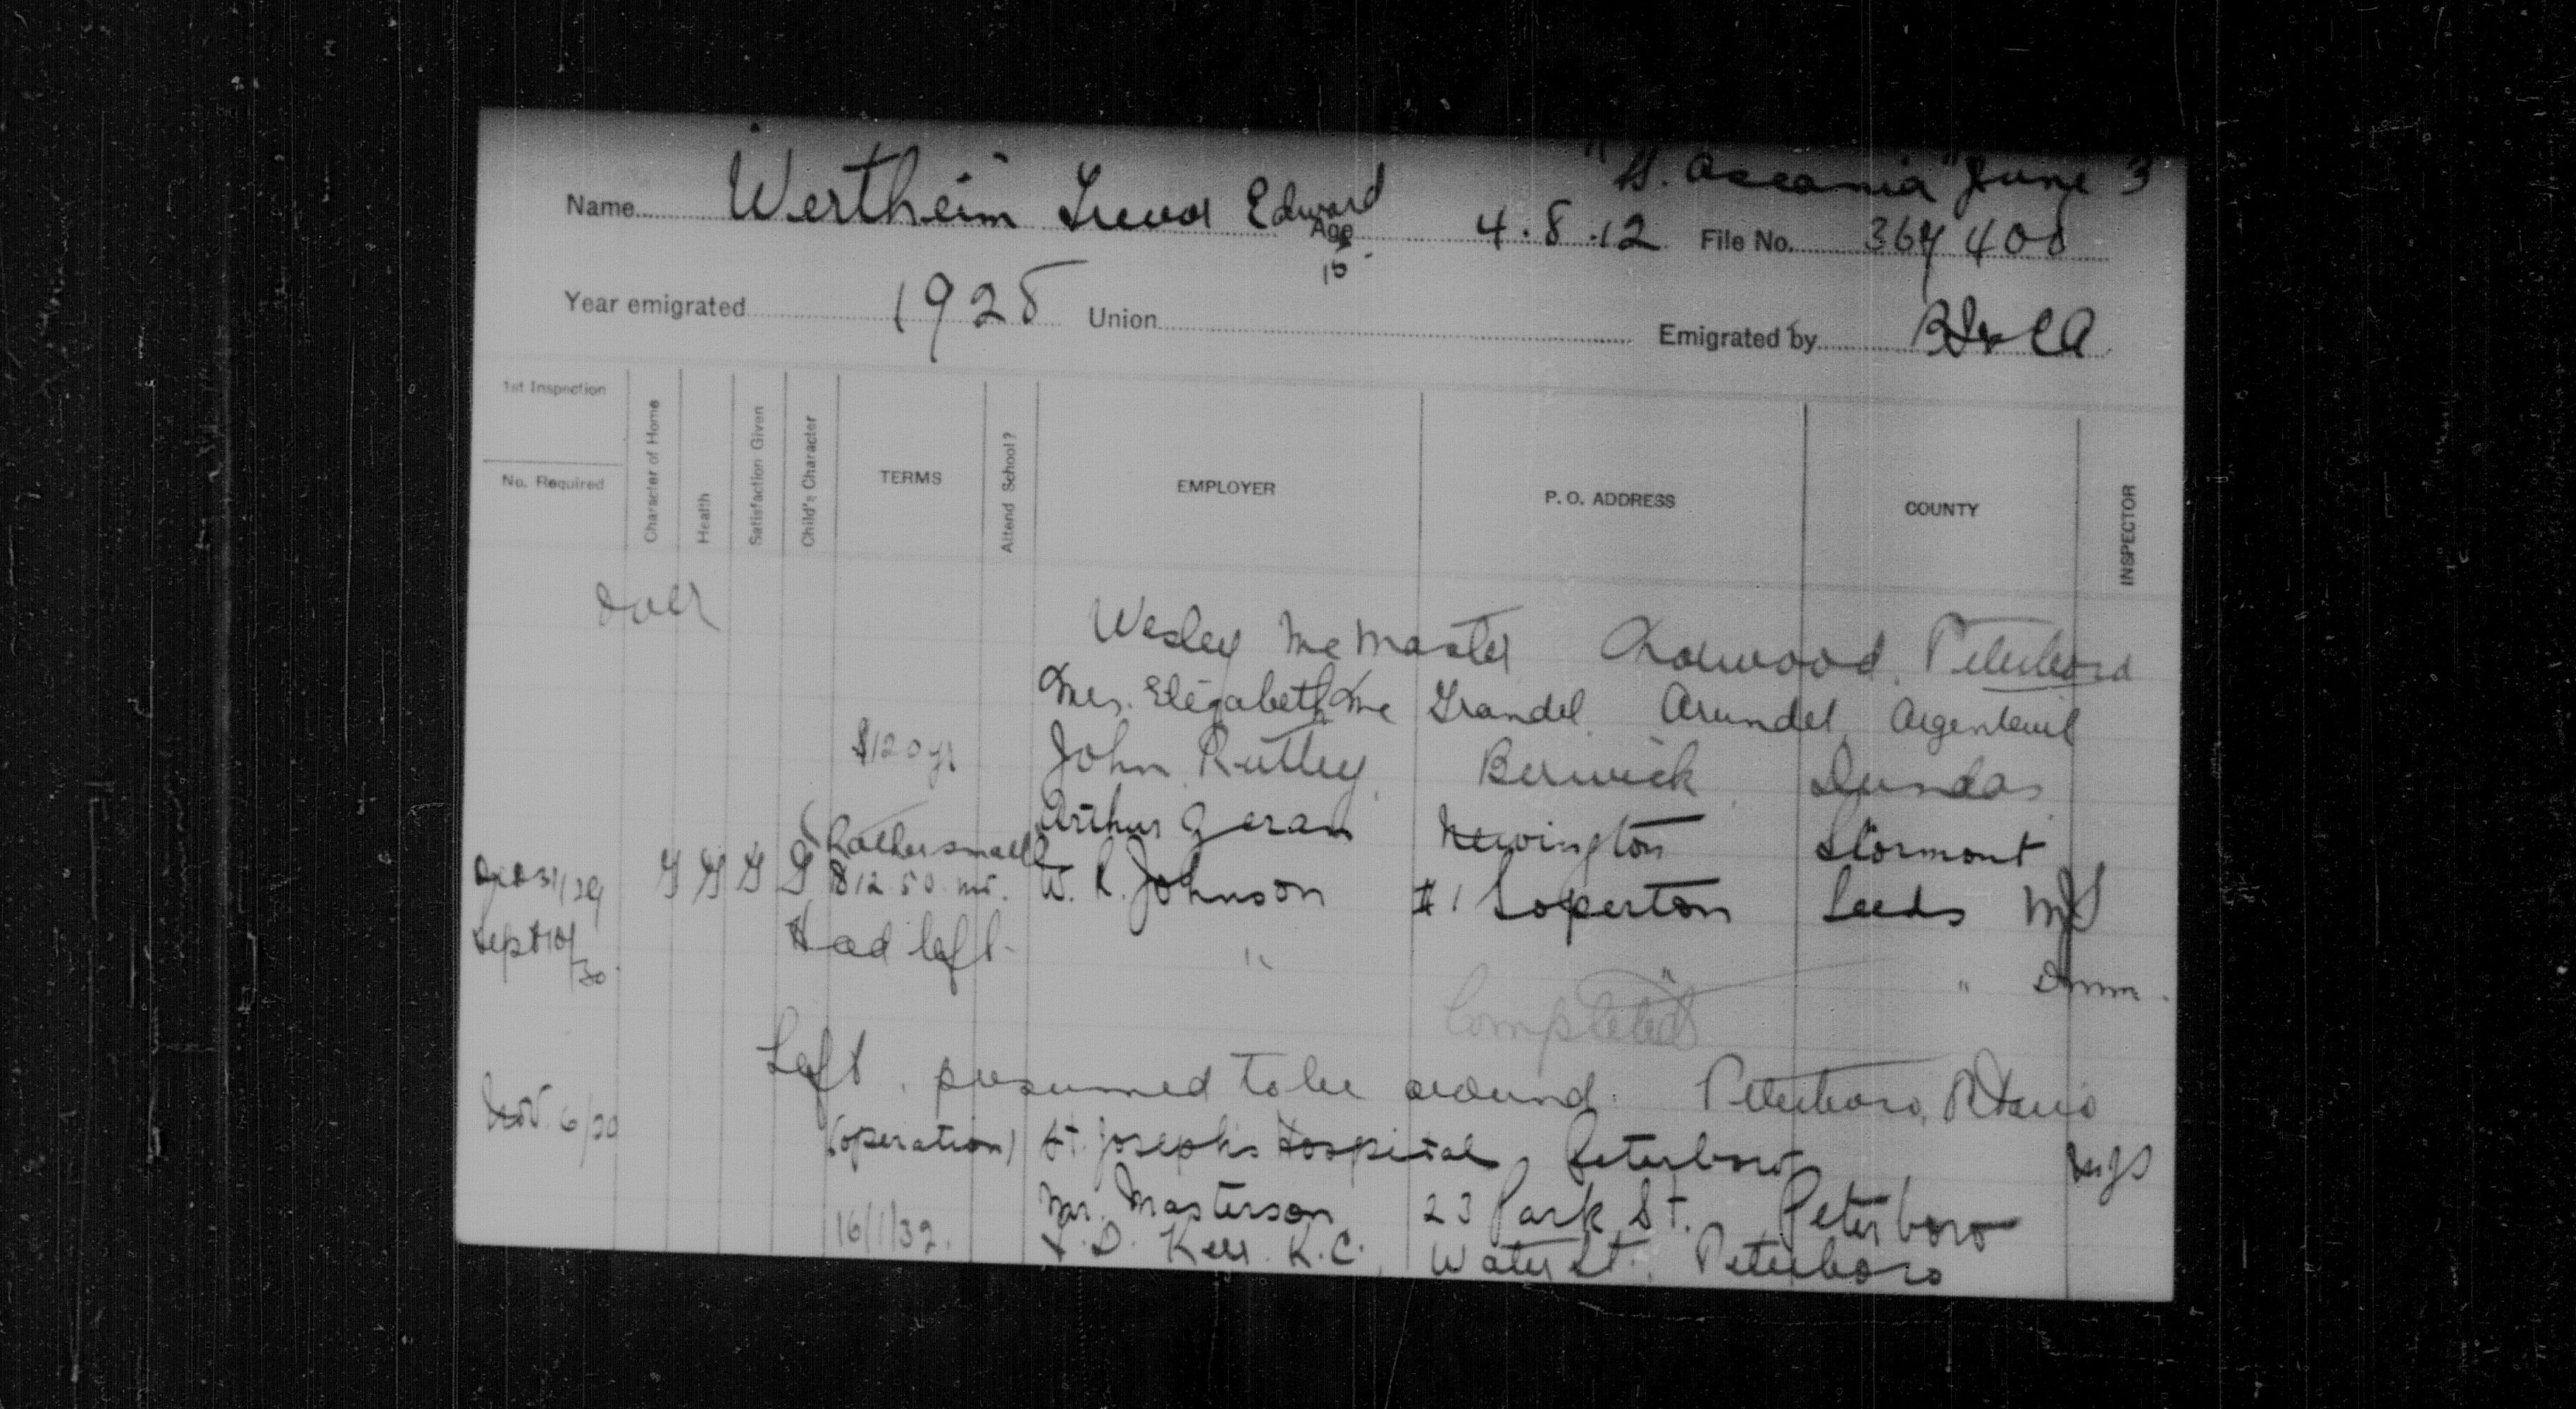 "A. Ascania" June 3
Name Wertheim Trevor Edward Age 15 4.8.12 File No. 367400
Year emigrated 1928 Union Emigrated by
1st Inspection
No. Required
Character of Home
Health
Satisfaction Given
Child's Character
TERMS
Attend School?
EMPLOYER
P. O. ADDRESS
COUNTY
INSPECTOR
over
Wesley McMaster Norwood, Peterboro
Mrs. Elizabeth Mc Grandel Arundel Argenteuil
$120 yr John Rutley Berwick Dundas
Arthur Geran Newington Stormont
Rather small
31/29 G G G G $12.50 mo. W. R. Johnson #1 Soperton Leeds MJS
Sept 10/30 Had left. " " "
Completed
Left, presumed to be around Peterboro, Ontario
Nov. 6/30 (operation) St. Joseph's Hospital, Peterboro MJS
Mr. Masterson 23 Park St. Peterboro
16/1/32. Kerr. K.C. Water St. Peterboro